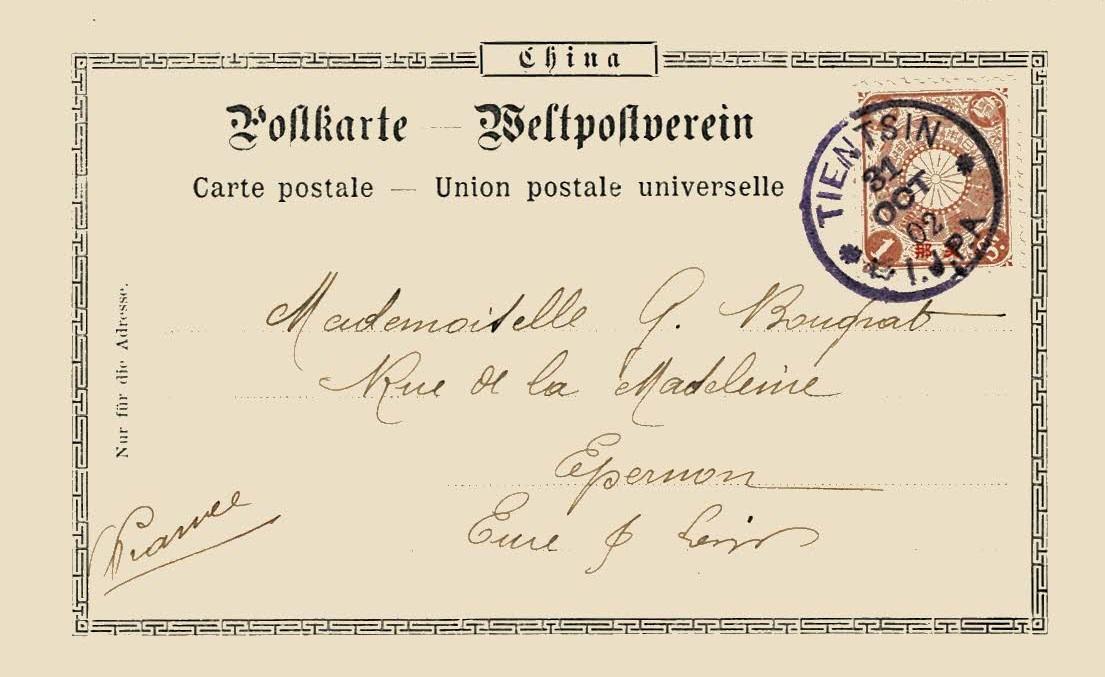 China
Postkarte — Weltpostverein
Carte postale — Union postale universelle
TIENTSIN
31
OCT
02
I.J.P.A
1
那
Nur für die Adresse.
Mademoiselle G. Bougrat
Rue de la Madeleine
Epernon
Eure & Loir
France